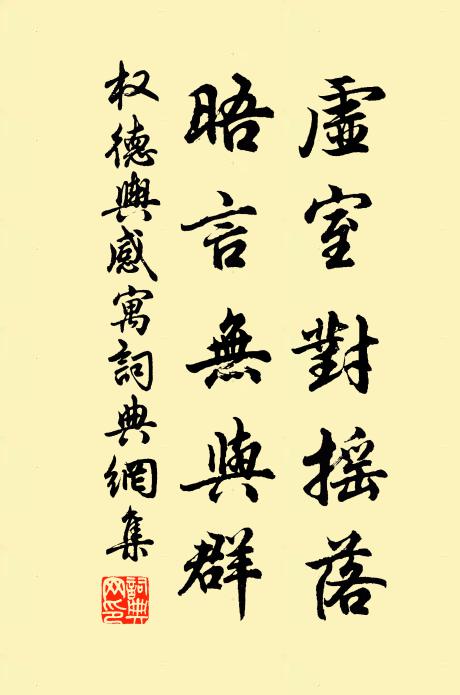 虛室對搖落
晤言無與群
权德輿感寓詞典網集
詞典網印